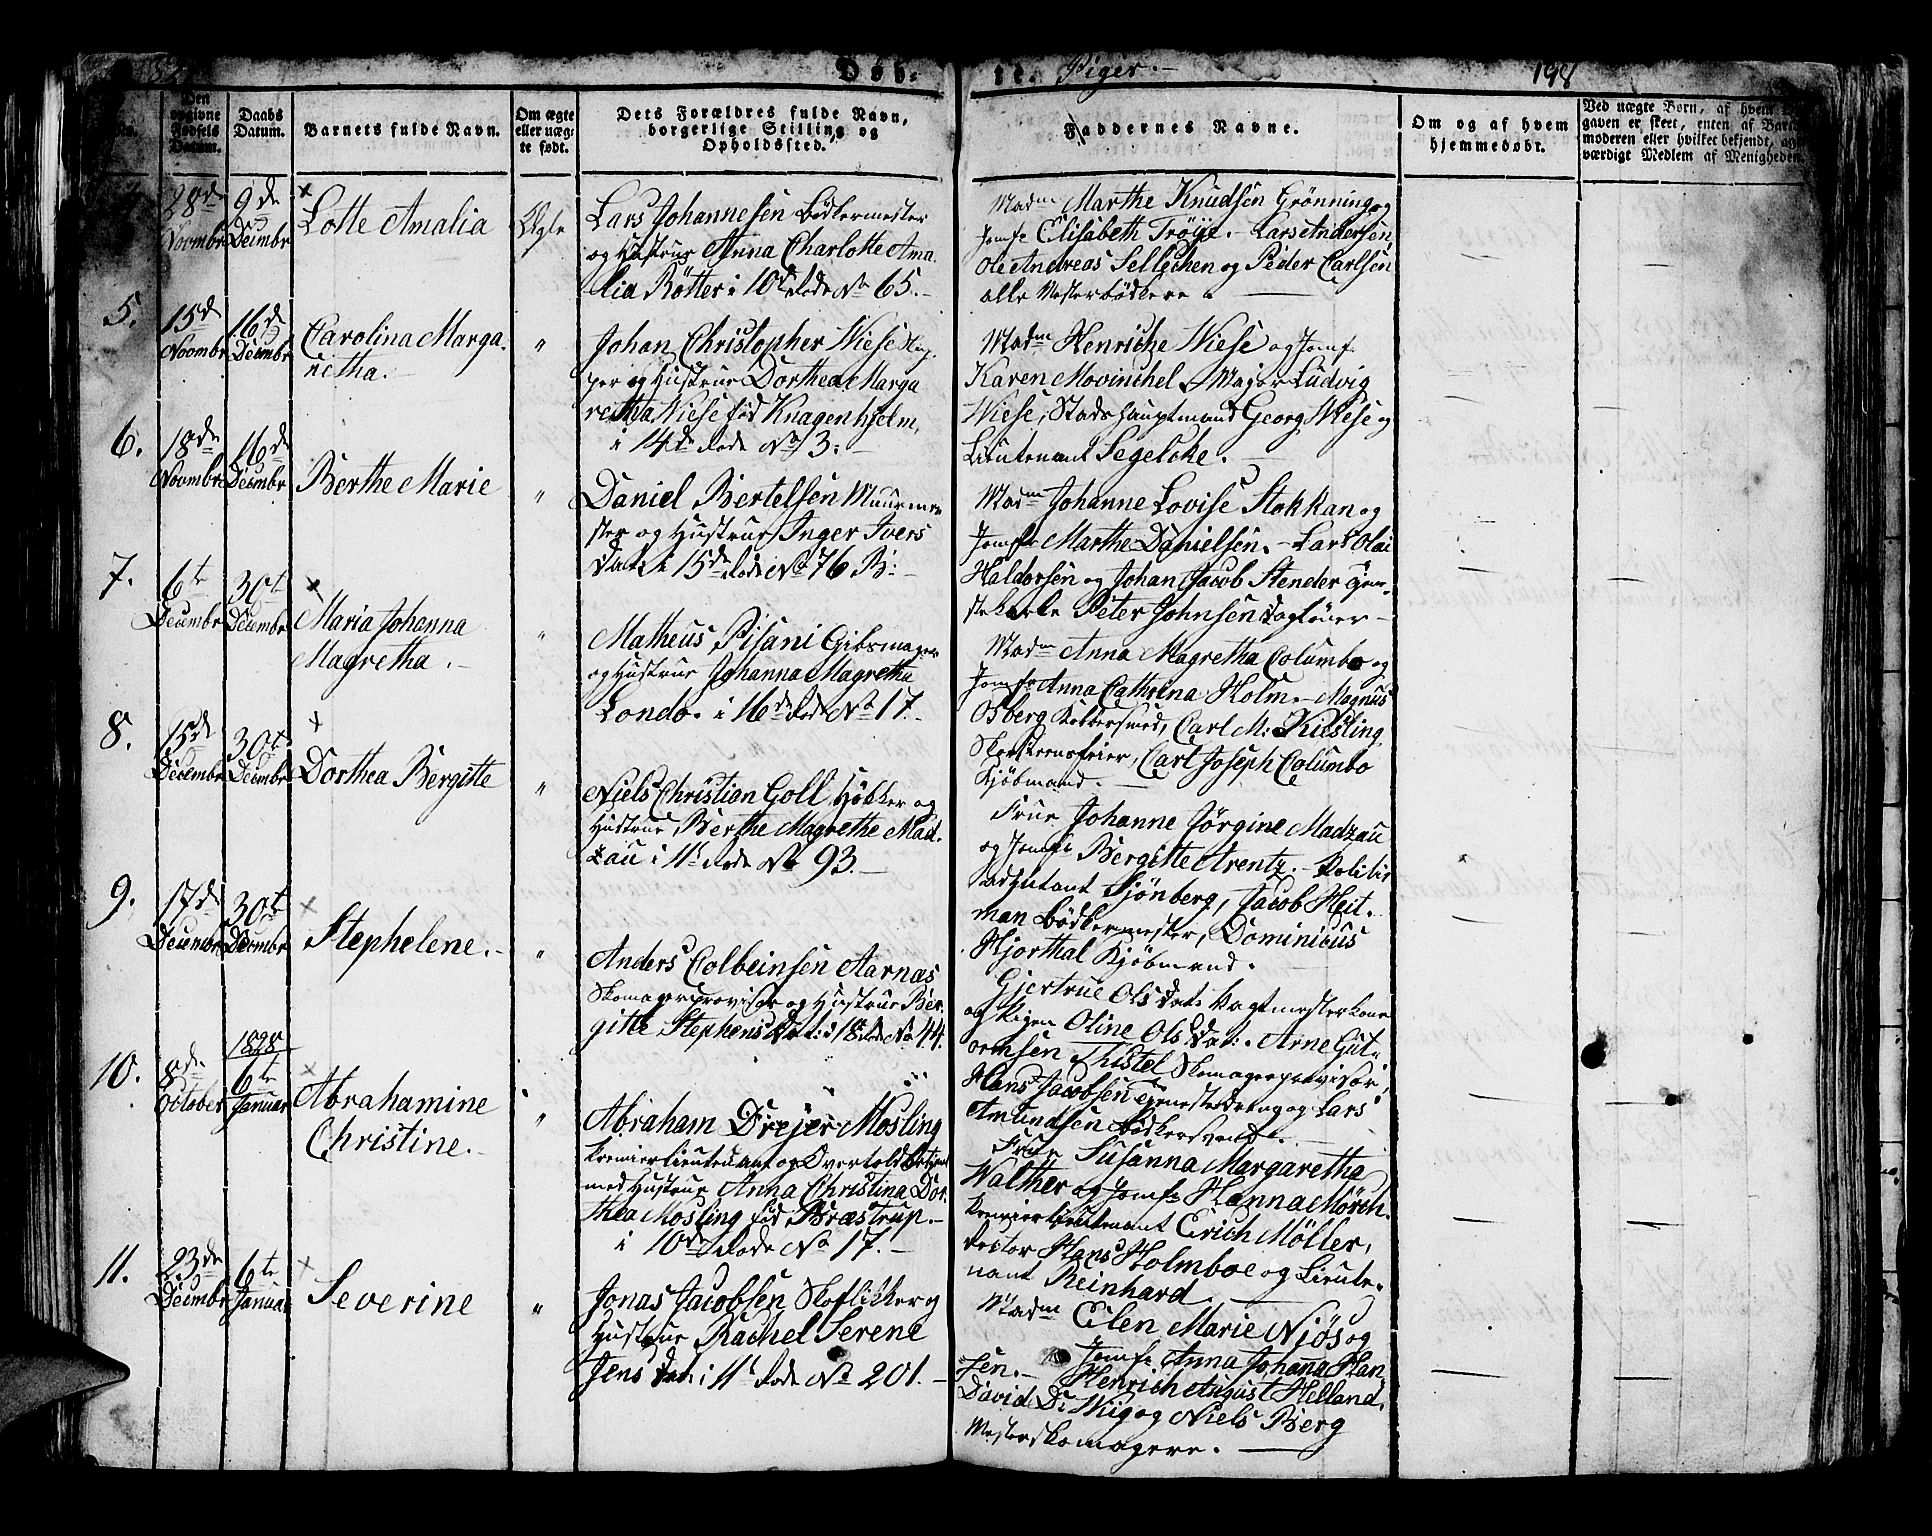 Døb-
te. Piger.-
198
Den opgivne Fødsels Datum.
Daabs Datum.
Barnets fulde Navn.
Om ægte eller uæg-te født.
Dets Forældres fulde Navn, borgerlige Stilling og Opholdssted.
Faddernes Navne.
Om og af hvem hjemmedøbt.
Ved uægte Børn, af hvem
gaven er skeet, enten af Barne
moderen eller hvilket bekjendt,
værdigt Medlem af Menigheden.
28de Novmbr
9de Decmbr
Lotte Amalia
Ægte
Lars Johannesen Bødkermester
og Hustrue Anna Charlotte Ama-
lia Rötter i 10de Rode No 65.-
Madm Marthe Knudsen Grönning og
Jomfr Elisabeth Tröye.- Lars Andersen,
Ole Andreas Sellechen og Peder Carlsen
alle Mesterbödkere.
5.
15de Novmbr
16de Decmbr
Carolina Marga-
retha.-
"
Johan Christopher Wiese
og Hustrue Dorthea Marga
retha Wiese fød Knagenhjelm,
i 14de Rode No 3.-
Madm Henriche Wiese og Jomf.
Karen Mowinchel.- Major Ludvig
Wiese, Stadshauptmand Georg Wiese og
Lieutenant Segelcke.
6.
18de Novmbr
16de Decmbr
Berthe Marie
"
Daniel Bertelsen Muurme-
ster og Hustrue Inger Ivers
Dat. i 15de Rode No 76 B:-
Madm Johanne Lovise Stokkan og
Jomfr Marthe Danielsen.- Lars Olai
Haldorsen og Johan Jacob Stender Tjene-
stekarle Peter Johnsen Dagløner-
7.
6te Decmbr
30te Decmbr
Maria Johanna
Magretha.-
"
Matheus Pisani Gibsmager
og Hustrue Johanna Magretha
Londo. i 16de Rode No 17.-
Madm Anna Magretha Columbo og
Jomfr Anna Cathrina Holm.- Magnus
Osberg Kobbersmed, Carl M: Kiesling
Skorsteensfeier, Carl Joseph Columbo
Kjöbmand.-
8.
15de Decembr
30te Decmbr
Dorthea Bergitte
"
Niels Christian Goll Høkker og
Hustrue Berthe Magrethe Mad-
zau i 11te Rode No 93.-
Frue Johanne Jörgine Madzau
og Jomfr Bergitte Arentz.- Politie
adjutant Sjönberg, Jacob Heit-
man Bödkermester, Dominicus
Hjorthal Kjöbmand.
9.
17de Decembr
30te Decmbr
Stephelene.-
"
Anders Colbeinsen Aarnæs
Skomagerprovisor og Hustrue Ber-
gitte Stephens Dat: i 18de Rode No 44.
Gjertrue Ols Dat: Vagtmesterkone
og Pigen Oline Ols Dat:. Arne Gut-
ormsen Thistel Skomagerprovisor,
Hans Jacobsen Tjenestedreng og Lars
Amundsen Bödkersvend.
10.
8de October
1828
6te Januar
Abrahamine
Christine.-
"
Abraham Drejer Mosling
Premierlieutenant og Overtoldbetjent
med Hustrue Anna Christina Dor-
thea Mosling fød Bræstrup.-
i 10de Rode No 17.-
Frue Susanna Margaretha
Walther og Jomfr Hanna Mörch.
Premierlieutenant Erich Möller,
Rector Hans Holmboe og Lieute-
nant Reinhard.
11.
23de Decmbr
6te Januar
Severine
"
Jonas Jacobsen Skoflikker og
Hustrue Rachel Serene
Jens Dat: i 11te Rode No 201.-
Madm Elen Marie Njös og
Jomfr Anna Johana Han
sen.- Henrich August Helland,
David D: Wiig og Niels Berg
Mesterskomagere.